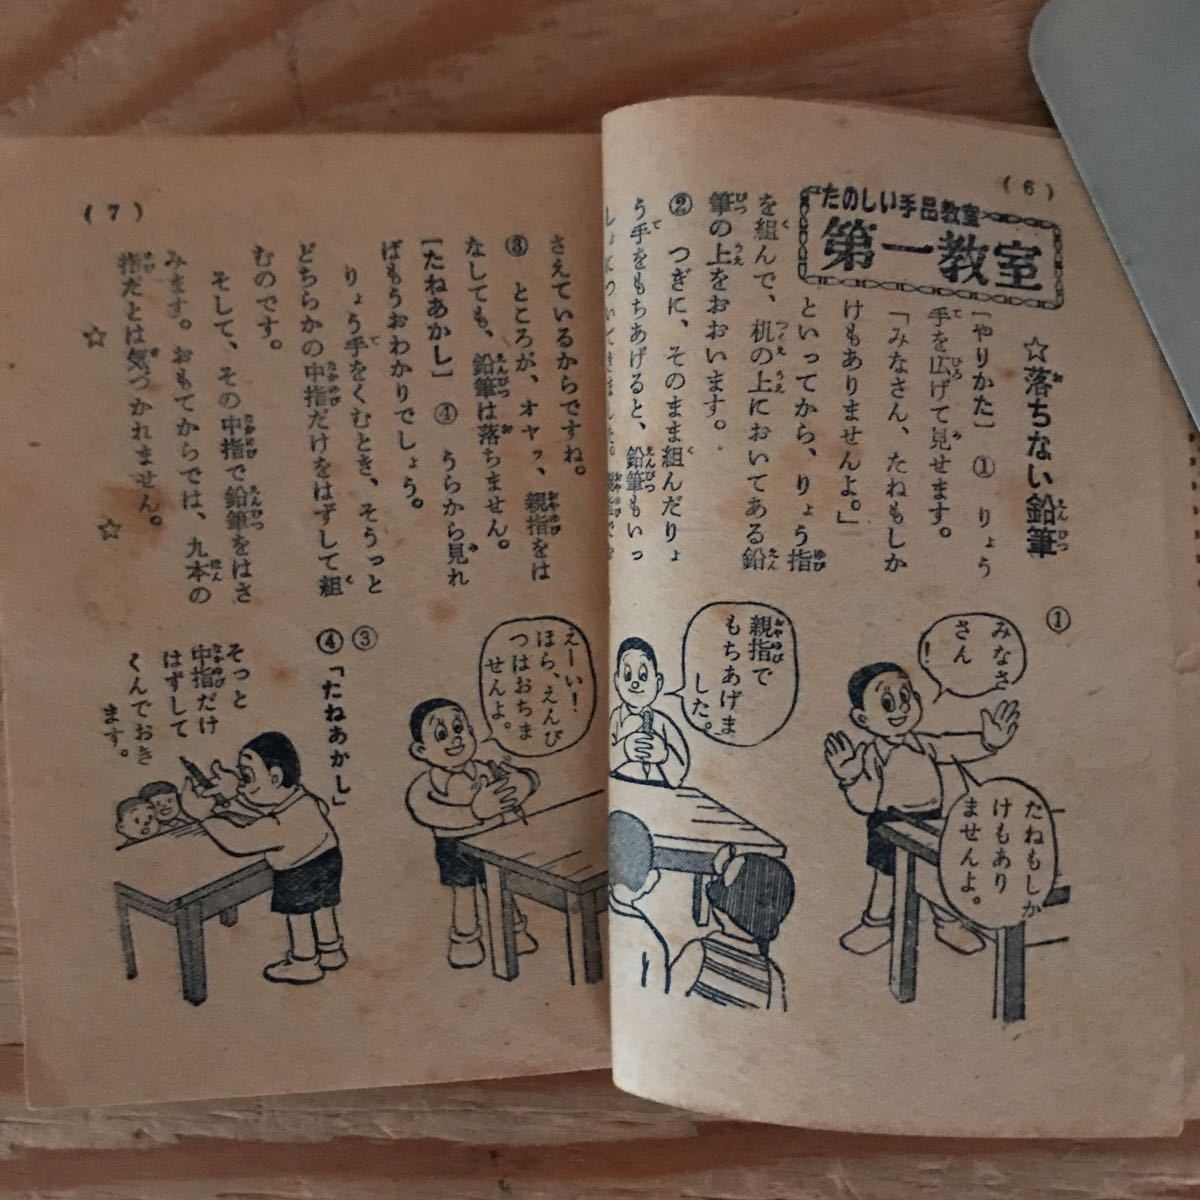 (6)
たのしい手品教室
第一教室
☆落ちない鉛筆
［やりかた］ ① りょう
手を広げて見せます。
「みなさん、たねもしか
けもありませんよ。」
といってから、りょう指
を組んで、机の上においてある鉛
筆の上をおおいます。
② つぎに、そのまま組んだりょ
う手をもちあげると、鉛筆もいっ
しょについてきました。
①
みなさ
さん
！
たねもしか
けもあり
ませんよ。
親指で
もちあげま
した。
(7)
さえているからですね。
③ ところが、オヤッ、親指をは
なしても、鉛筆は落ちません。
［たねあかし］ ④ うらから見れ
ばもうおわかりでしょう。
りょう手をくむとき、そうっと
どちらかの中指だけをはずして組
むのです。
そして、その中指で鉛筆をはさ
みます。おもてからでは、九本の
指だとは気づかれません。
☆ ☆
③
えーい！
ほら、えんぴ
つはおちま
せんよ。
④「たねあかし」
そっと
中指だけ
はずして
くんでおき
ます。